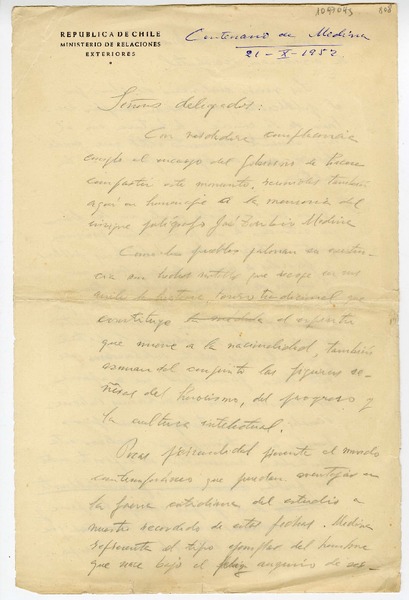 1047043
808
REPUBLICA DE CHILE
MINISTERIO DE RELACIONES
EXTERIORES
Centenario de Medina
21-X-1952
Señores delegados:
Con verdadera complacencia
cumplo el encargo del Gobierno de
compartir este momento, reunidos también
aquí en homenaje a la memoria del
insigne polígrafo José Toribio Medina
Como los pueblos jalonan su
con hechos que
la historia, tradicional que
constituye la medida el espíritu
que mueve a la nacionalidad, también
asoman del conjunto las figuras se-
ñeras del heroísmo, del progreso y
la cultura intelectual.
Pocas personalidad frente el mundo
contemporáneo que puedan aventajar en
la faena cotidiana del estudio a
nuestro recordado de estas fechas. Medina
representa el tipo ejemplar del hombre
que nace bajo el feliz augurio de ser-